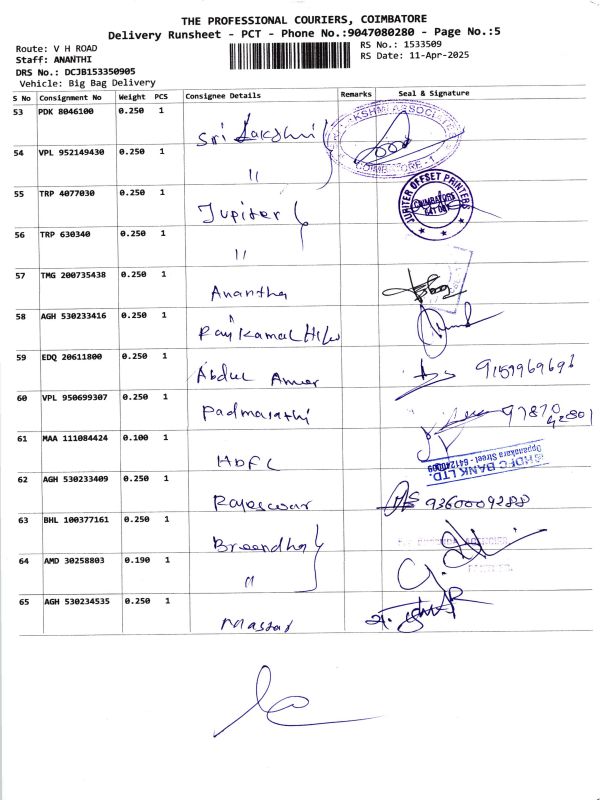 THE PROFESSIONAL COURIERS, COIMBATORE
Delivery Runsheet - PCT - Phone No.:9047080280 - Page No.:5
Route: V H ROAD
RS No.: 1533509
Staff: ANANTHI
RS Date: 11-Apr-2025
DRS No.: DCJB153350905
Vehicle: Big Bag Delivery
S No Consignment No Weight PCS Consignee Details Remarks Seal & Signature
53 PDK 8046100 0.250 1 Sri Lakshmi
54 VPL 952149430 0.250 1 "
COIMBATORE - 1
55 TRP 4077030 0.250 1 Jupiter
JUPITER OFFSET PRINTERS
COIMBATORE
56 TRP 630340 0.250 1 "
57 TMG 200735438 0.250 1 Anantha
58 AGH 530233416 0.250 1 Raj Kamal
59 EDQ 20611800 0.250 1 Abdul 9159969696
60 VPL 950699307 0.250 1 97870
42801
61 MAA 111084424 0.100 1 HDFC
HDFC BANK LTD.
Oppanakara Street - 641
62 AGH 530233409 0.250 1 Rajeswar 9360009288
63 BHL 100377161 0.250 1 Breendha
64 AMD 30258803 0.190 1 "
65 AGH 530234535 0.250 1